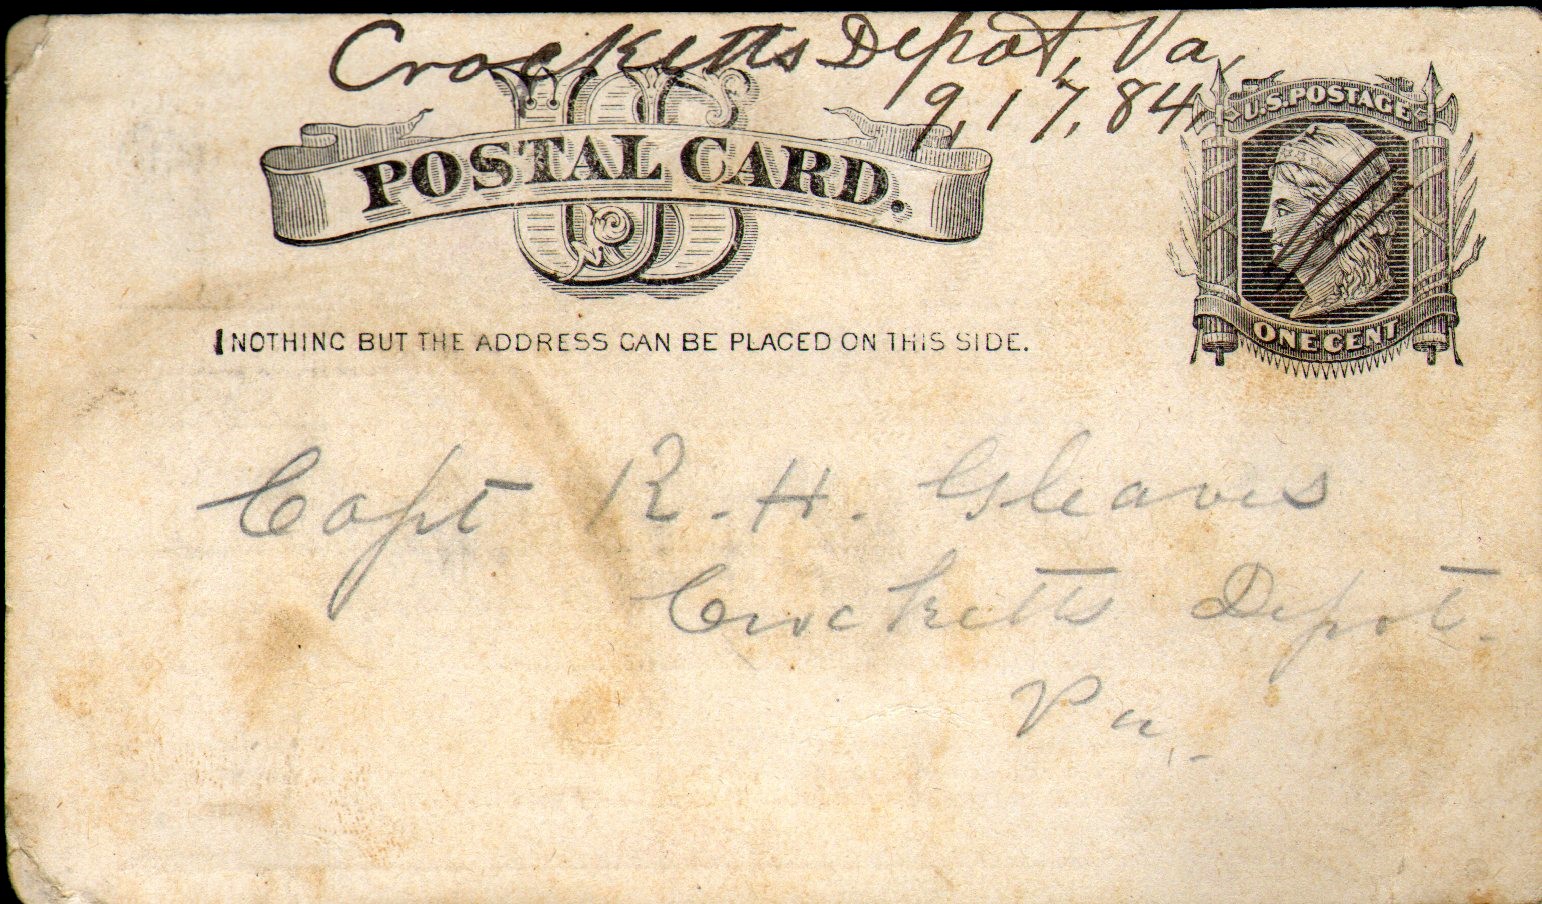 Crocketts Depot, Va,
9,17,84,
U.S. POSTAGE
US
POSTAL CARD.
NOTHING BUT THE ADDRESS CAN BE PLACED ON THIS SIDE.
ONE CENT
Capt R. H. Gleaves
Crocketts Depot.
Va.